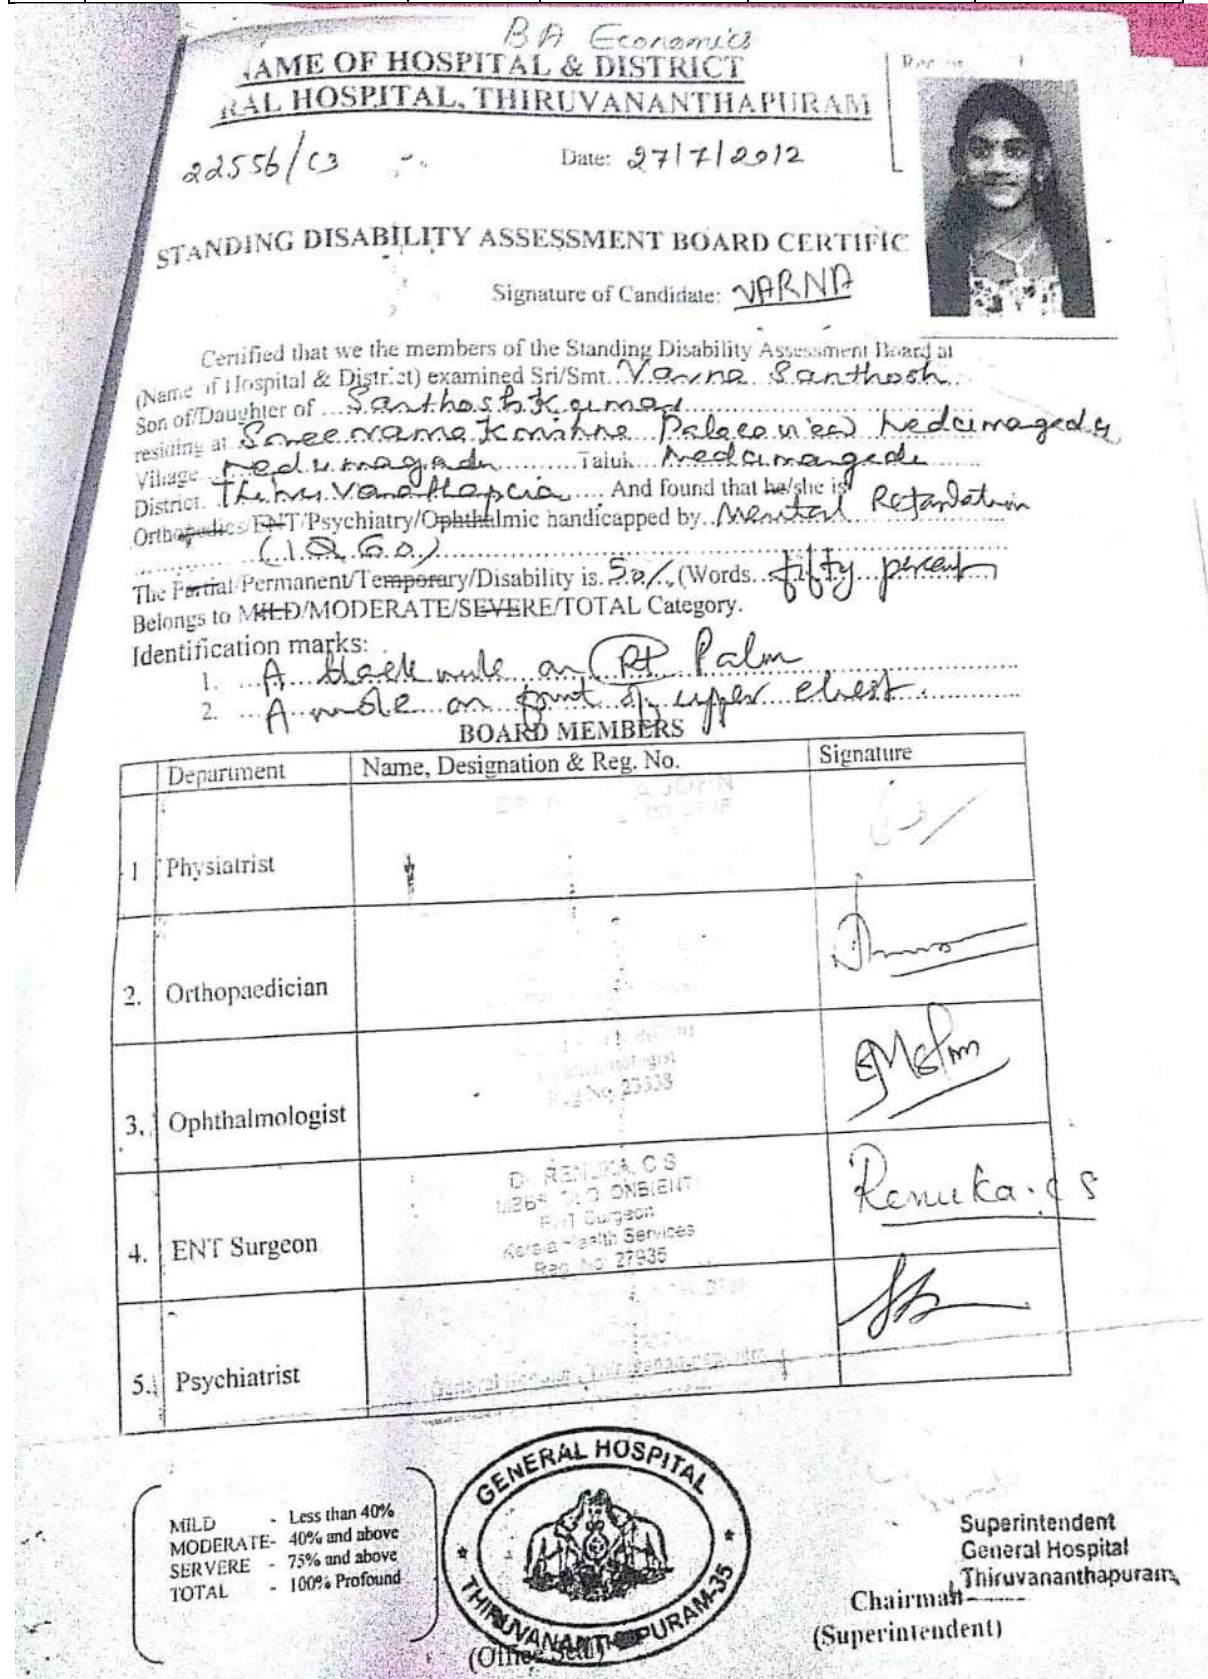 BA Economics
AME OF HOSPITAL & DISTRICT
RAL HOSPITAL, THIRUVANANTHAPURAM
22556/C3
Date: 27/7/2012
STANDING DISABILITY ASSESSMENT BOARD CERTIFIC
Signature of Candidate: VARNA
Certified that we the members of the Standing Disability Assessment Board at
(Name of Hospital & District) examined Sri/Smt. Varna Santhosh
Son of/Daughter of Santhosh Kumar
residing at Sreeramakrishna Palaceview Nedumagadu
Village Nedumagadu Taluk Nedumangadu
District. Thiruvananthapuram And found that he/she is
Orthopedics/ENT/Psychiatry/Ophthalmic handicapped by Mental Retardation
(IQ 60)
The Partial/Permanent/Temporary/Disability is. 50%. (Words fifty percent
Belongs to MILD/MODERATE/SEVERE/TOTAL Category.
Identification marks:
1. A black mole on Rt Palm
2. A mole on front of upper chest.
BOARD MEMBERS
Department Name, Designation & Reg. No. Signature
1 Physiatrist
2. Orthopaedician
3. Ophthalmologist
Reg No. 23338
4. ENT Surgeon
Dr RENUKA, C S
ENT Surgeon
Kerala Health Services
Reg. No: 27935
Renuka. C S
5. Psychiatrist
MILD - Less than 40%
MODERATE- 40% and above
SERVERE - 75% and above
TOTAL - 100% Profound
GENERAL HOSPITAL
THIRUVANANTHAPURAM-35
(Office Seal)
Superintendent
General Hospital
Thiruvananthapuram
Chairman
(Superintendent)